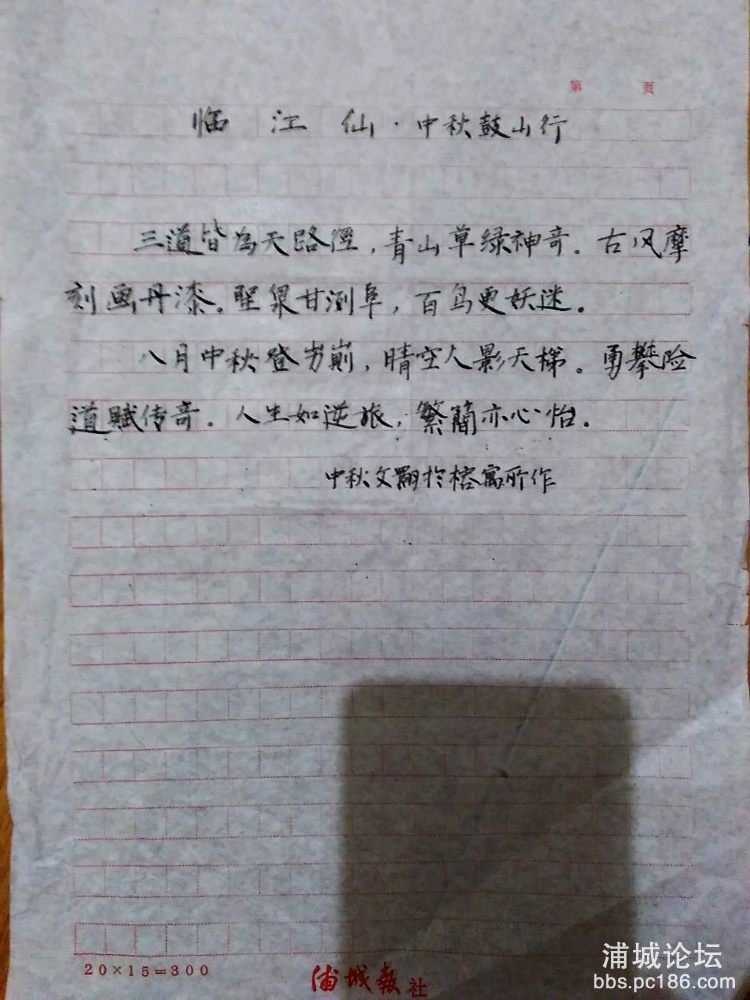 第 页
临江仙·中秋鼓山行
三道皆为天路徑，青山草绿神奇。古风摩
刻画丹漆。聖泉甘洌阜，百鸟更妖迷。
八月中秋登屴崱，晴空人影天梯。勇攀险
道赋传奇。人生如逆旅，繁簡亦心怡。
中秋文翾於榕寓所作
20×15=300
浦城报社
浦城论坛
bbs.pc186.com